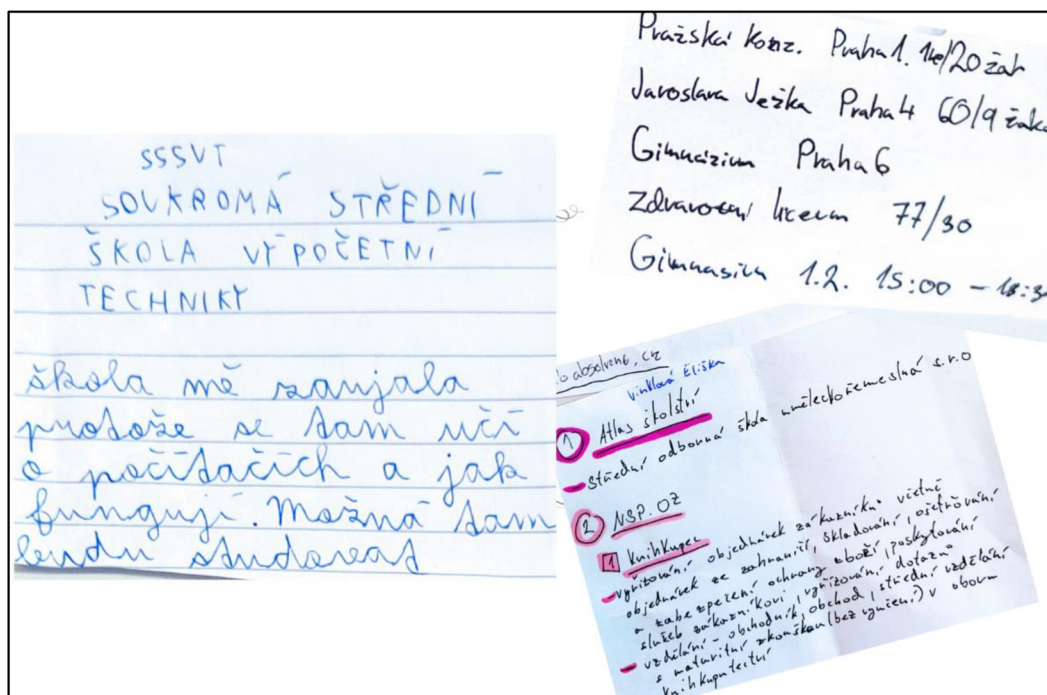 SSSVT
SOUKROMÁ STŘEDNÍ
ŠKOLA VÝPOČETNÍ
TECHNIKY
škola mě zaujala
protože se tam učí
o počítačích a jak
fungují. Možná tam
budu studovat
Pražská konz. Praha 1. /20 žák
Jaroslava Ježka Praha 4 60/9 žáka
Gimnázium Praha 6
Zdravotní liceum 77/30
Gimnasium 1.2. 15:00 –
absolvent, cz
Vinklová Eliška
1 Atlas školství
– střední odborná škola uměleckořemeslná s.r.o
2 NSP. OZ
1 Knihkupec
– vyřizování objednávek zákazníků včetně
objednávek ze zahraničí, skladování, ošetřování
a zabezpečení ochrany zboží, poskytování
služeb zákazníkovi, vyřizování dotazů
– vzdělání – obchodník, obchod, střední vzdělání
s maturitní zkouškou (bez vyučení) v oboru
knihkupectví